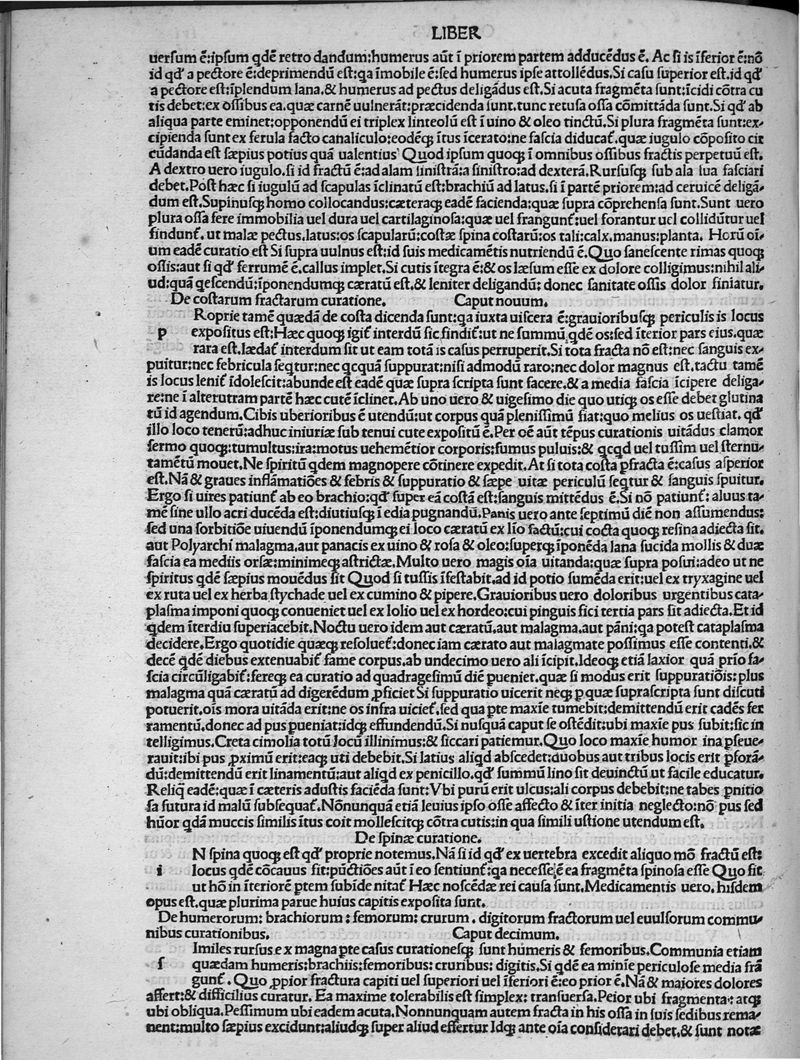 LIBER
uersum ē:ipsum qdē retro dandum:humerus aūt ī priorem partem adducēdus ē. Ac si is īferior ē:nō
id qđ a pectore ē:deprimendū est:qa īmobile ē:sed humerus ipse attollēdus. Si casu superior est.id qđ
a pectore est:īplendum lana.& humerus ad pectus deligādus est. Si acuta fragmēta sunt:īcidi cōtra cu
tis debet:ex ossibus ea.quæ carnē uulnerāt:præcidenda sunt.tunc retusa ossa cōmittāda sunt. Si qđ ab
aliqua parte eminet:opponendū ei triplex linteolū est ī uino & oleo tinctū. Si plura fragmēta sunt:ex-
cipienda sunt ex ferula facto canaliculo:eodēq; ītus īcerato:ne fascia diducat̃.quæ iugulo cōposito cir
cūdanda est sæpius potius quā ualentius Quod ipsum quoq; ī omnibus ossibus fractis perpetuū est.
A dextro uero iugulo.si id fractū ē:ad alam sinistrā:a sinistro:ad dexterā. Rursusq; sub ala sua fasciari
debet. Post hæc si iugulū ad scapulas īclinatū est:brachiū ad latus.si ī partē priorem:ad ceruicē deligā-
dum est. Supinusq; homo collocandus:cæteraq; eadē facienda:quæ supra cōprehensa sunt. Sunt uero
plura ossa fere immobilia uel dura uel cartilaginosa:quæ uel frangunt̃:uel forantur uel colliduntur uel
findunt̃. ut malæ pectus.latus:os scapularū:costæ spina costarū:os tali:calx.manus:planta. Horū oī-
um eadē curatio est Si supra uulnus est:id suis medicamētis nutriendū ē. Quo sanescente rimas quoq;
ossis:aut si qđ ferrumē ē.callus implet. Si cutis ītegra ē:& os læsum esse ex dolore colligimus:nihil ali-
ud:quā qescendū:īponendumq; cæratū est.& leniter deligandū: donec sanitate ossis dolor finiatur.
De costarum fractarum curatione. Caput nouum.
Roprie tamē quædā de costa dicenda sunt:qa iuxta uiscera ē:grauioribusq; periculis is locus
p expositus est:Hæc quoq; igit̃ interdū sic findit̃:ut ne summū qdē os:sed īterior pars eius.quæ
rara est.lædat̃ interdum sit ut eam totā is casus perruperit. Si tota fracta nō est:nec sanguis ex-
puitur:nec febricula seqtur:nec qcquā suppurat:nisi admodū raro:nec dolor magnus est.tactu tamē
is locus lenit̃ īdolescit:abunde est eadē quæ supra scripta sunt facere.& a media fascia īcipere deliga-
re:ne ī alterutram partē hæc cutē īclinet. Ab uno uero & uigesimo die quo utiq; os esse debet glutina
tū id agendum. Cibis uberioribus ē utendū:ut corpus quā plenissimū fiat:quo melius os uestiat. qđ
illo loco tenerū:adhuc iniuriæ sub tenui cute expositū ē. Per oē aūt tēpus curationis uitādus clamor
sermo quoq;:tumultus:ira:motus uehemētior corporis:fumus puluis:& qcqd uel tussim uel sternu-
tamētū mouet. Ne spiritū qdem magnopere cōtinere expedit. At si tota costa pfracta ē:casus asperior
est. Nā & graues inflāmatiōes & febris & suppuratio & sæpe uitæ periculū seqtur & sanguis spuitur.
Ergo si uires patiunt̃ ab eo brachio:qđ super eā costā est:sanguis mittēdus ē. Si nō patiunt̃: aluus ta-
mē sine ullo acri ducēda est:diutiusq; ī edia pugnandū. Panis uero ante septimū diē non assumendus:
sed una sorbitiōe uiuendū īponendumq; ei loco cæratū ex lirio factū:cui cocta quoq; resina adiecta sit.
aut Polyarchi malagma.aut panacis ex uino & rosa & oleo:superq; īponēda lana sucida mollis & duæ
fascia ea mediis orsæ:minimeq; astrictæ. Multo uero magis oīa uitanda:quæ supra posui:adeo ut ne
spiritus qdē sæpius mouēdus sit Quod si tussis īfestabit.ad id potio sumēda erit:uel ex tryxagine uel
ex ruta uel ex herba stychade uel ex cumino & pipere. Grauioribus uero doloribus urgentibus cata-
plasma imponi quoq; conueniet uel ex lolio uel ex hordeo:cui pinguis fici tertia pars sit adiecta. Et id
qdem īterdiu superiacebit. Noctu uero idem aut cæratū.aut malagma.aut pāni:qa potest cataplasma
decidere. Ergo quotidie quæq; resoluet̃:donec iam cærato aut malagmate possimus esse contenti.&
decē qdē diebus extenuabit̃ fame corpus.ab undecimo uero ali īcipit. Ideoq; etiā laxior quā prio fa-
scia circūligabit̃:fereq; ea curatio ad quadragesimū diē pueniet.quæ si modus erit suppuratiōis: plus
malagma quā cæratū ad digerēdum pficiet Si suppuratio uicerit neq; p quæ suprascripta sunt discuti
potuerit.oīs mora uitāda erit:ne os infra uicief̃.sed qua pte maxīe tumebit:demittendū erit cadēs fer
ramentū.donec ad pus pueniat:idq; effundendū. Si nusquā caput se ostēdit:ubi maxīe pus subit:sic in
telligimus. Creta cimolia totū locū illinimus:& siccari patiemur. Quo loco maxīe humor ina pseue-
rauit:ibi pus pximū erit:eaq; uti debebit. Si latius aliqd abscedet:duobus aut tribus locis erit pforā-
dū:demittendū erit linamentū:aut aliqd ex penicillo.qđ summū lino sit deuinctū ut facile educatur.
Reliq̄ eadē:quæ ī cæteris adustis faciēda sunt:Vbi purū erit ulcus:ali corpus debebit:ne tabes pnitio
sa futura id malū subsequat̃. Nōnunquā etiā leuius ipso osse affecto & īter initia neglecto:nō pus sed
hūor qdā muccis similis ītus coit mollescitq; cōtra cutis:in qua simili ustione utendum est.
De spinæ curatione.
N spina quoq; est qđ proprie notemus. Nā si id qđ ex uertebra excedit aliquo mō fractū est:
i locus qdē cōcauus fit:pūctiōes aūt ī eo sentiunt̃:qa necesse ē ea fragmēta spinosa esse Quo fit
ut hō in īteriorē ptem subīde nitat̃ Hæc noscēdæ rei causa sunt. Medicamentis uero. hisdem
opus est.quæ plurima parue huius capitis exposita sunt.
De humerorum: brachiorum : femorum: crurum . digitorum fractorum uel euulsorum commu-
nibus curationibus. Caput decimum.
Imiles rursus ex magna pte casus curationesq; sunt humeris & femoribus. Communia etiam
s quædam humeris:brachiis:femoribus: cruribus: digitis. Si qdē ea minīe periculose media frā
gunt̃. Quo ppior fractura capiti uel superiori uel īferiori ē:eo prior ē. Nā & maiores dolores
affert:& difficilius curatur. Ea maxime tolerabilis est simplex: transuersa. Peior ubi fragmenta: atq;
ubi obliqua. Pessimum ubi eadem acuta. Nonnunquam autem fracta in his ossa in suis sedibus rema-
nent:multo sæpius excidunt:aliudq; super aliud effertur Idq; ante oīa considerari debet.& sunt notæ